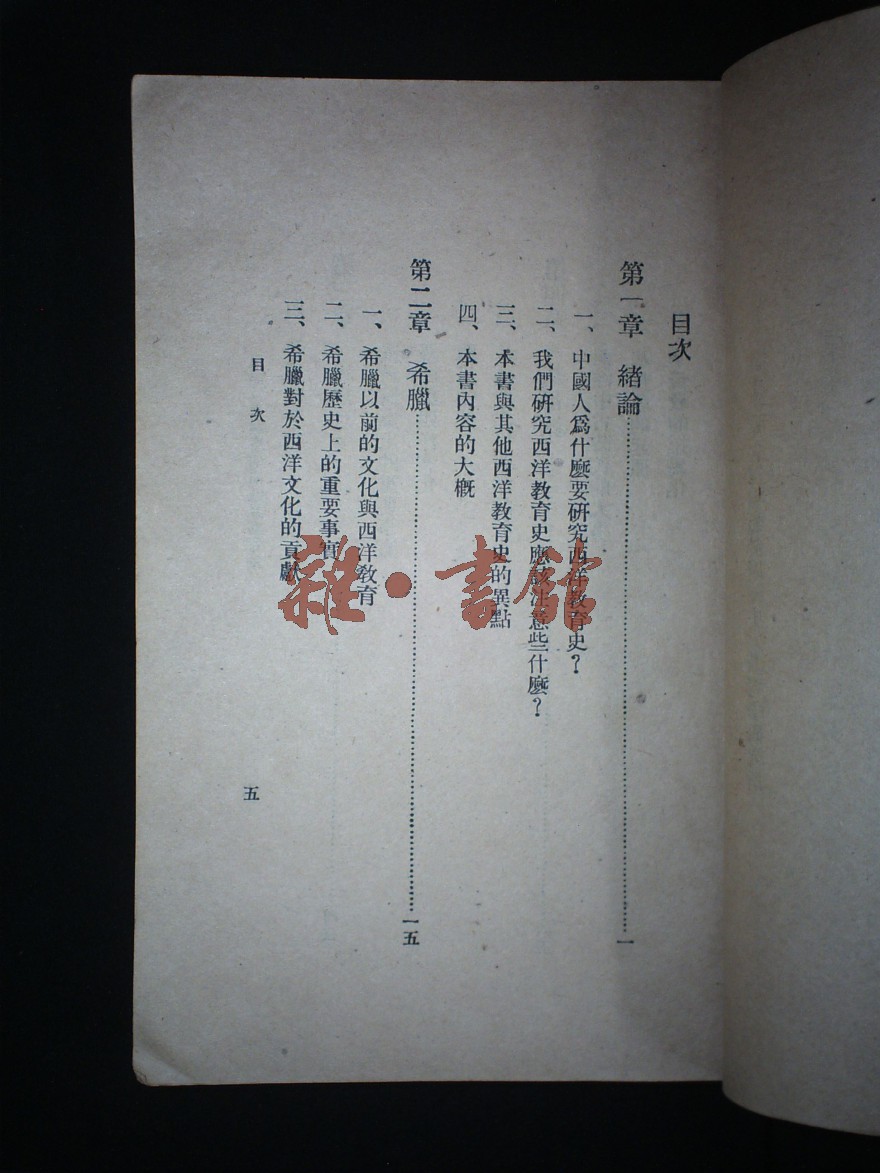 目次
第一章　緒論……一
一、中國人爲什麼要研究西洋教育史？
二、我們研究西洋教育史應該注意些什麼？
三、本書與其他西洋教育史的異點
四、本書內容的大概
第二章　希臘……一五
一、希臘以前的文化與西洋教育
二、希臘歷史上的重要事實
三、希臘對於西洋文化的貢獻
目次
五
雜·書館